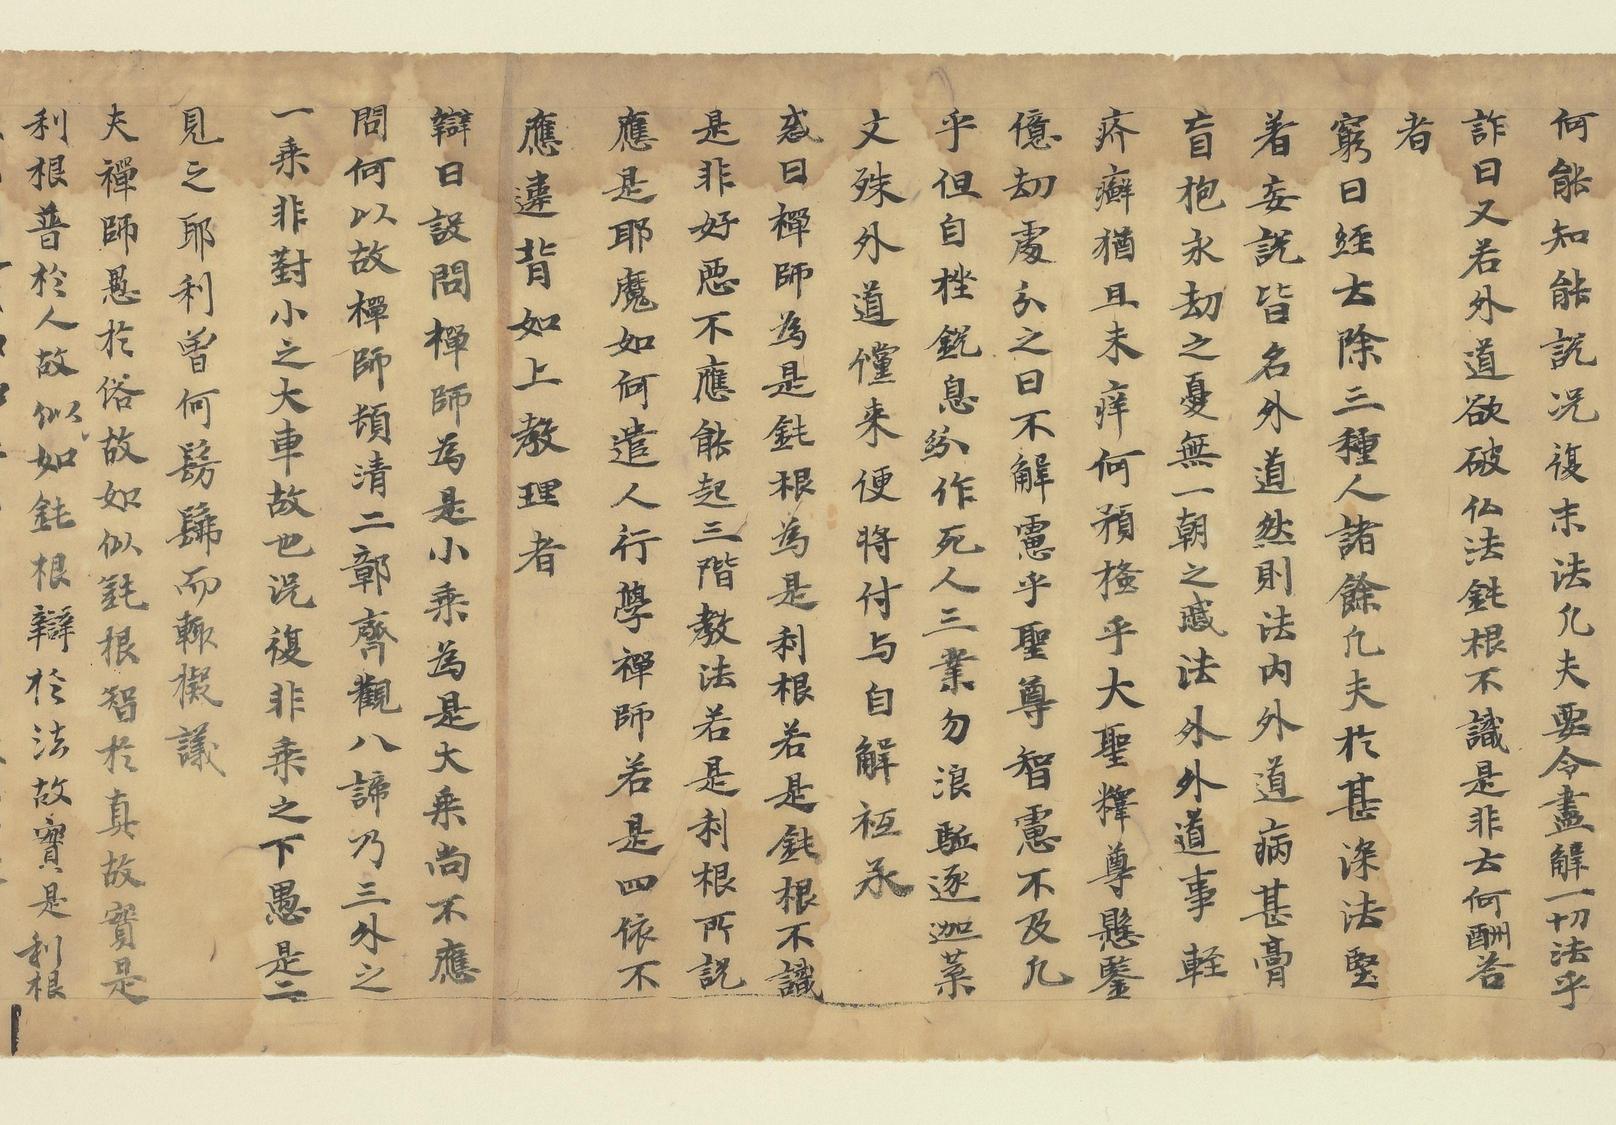 何能知能説况復末法凡夫要令盡解一切法乎
詐曰又若外道欲破仏法鈍根不識是非去何酬答
者
窮曰經去除三種人諸餘凡夫於甚深法堅
着妄説皆名外道然則法内外道病甚膏
盲抱永劫之憂無一朝之臧法外外道事軽
疥癬猶且未痒何預搔乎大聖釋尊懸鑒
億劫處分之曰不解憲乎聖尊智憲不及凡
乎但自挫鋭息紛作死人三業勿浪駈逐迦葉
文殊外道儻来便將付与自解祗承
惑曰禪師為是鈍根為是利根若是鈍根不識
是非好悪不應能起三階教法若是利根所説
應是耶魔如何遣人行學禪師若是四依不
應違背如上教理者
辯曰設問禪師為是小乘為是大乘尚不應
問何以故禪師頡清二彰齊觀八諦乃三外之
一乘非對小之大車故也况復非乘之下愚是二
見之耶利曾何髣髴而輙擬議
夫禪師愚於俗故如似鈍根智於真故實是
利根普於人故似如鈍根辯於法故實是利根